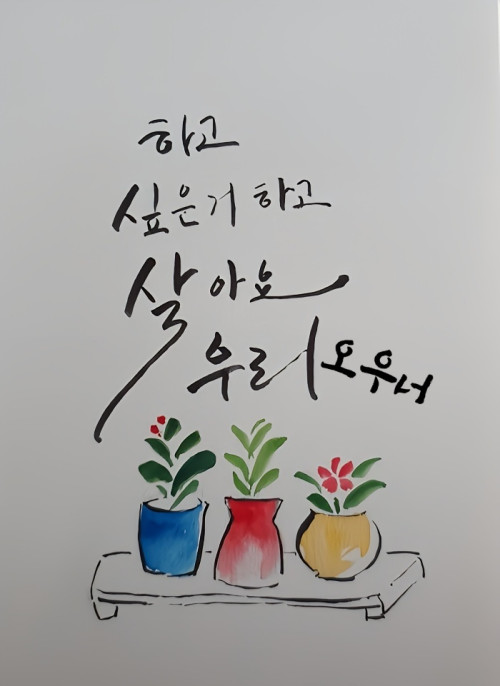 하고
싶은거 하고
살아요
우리 오우너